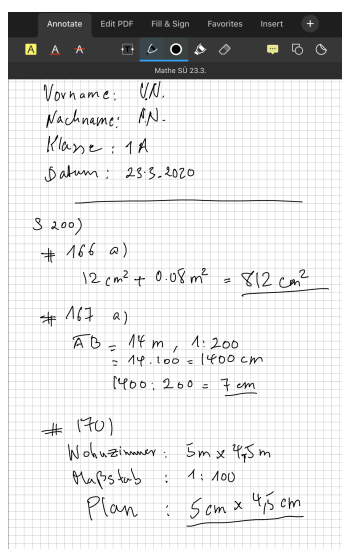 Annotate Edit PDF Fill & Sign Favorites Insert +
A A A
Mathe SÜ 23.3.
Vorname: V.N.
Nachname: N.N.
Klasse: 1A
Datum: 23.3.2020
S 200)
# 166 a)
12 cm² + 0.08 m² = 812 cm²
# 167 a)
AB = 14 m, 1:200
= 14.100 = 1400 cm
1400 : 200 = 7 cm
# 170)
Wohnzimmer: 5m x 4,5m
Maßstab : 1:100
Plan : 5 cm x 4,5 cm